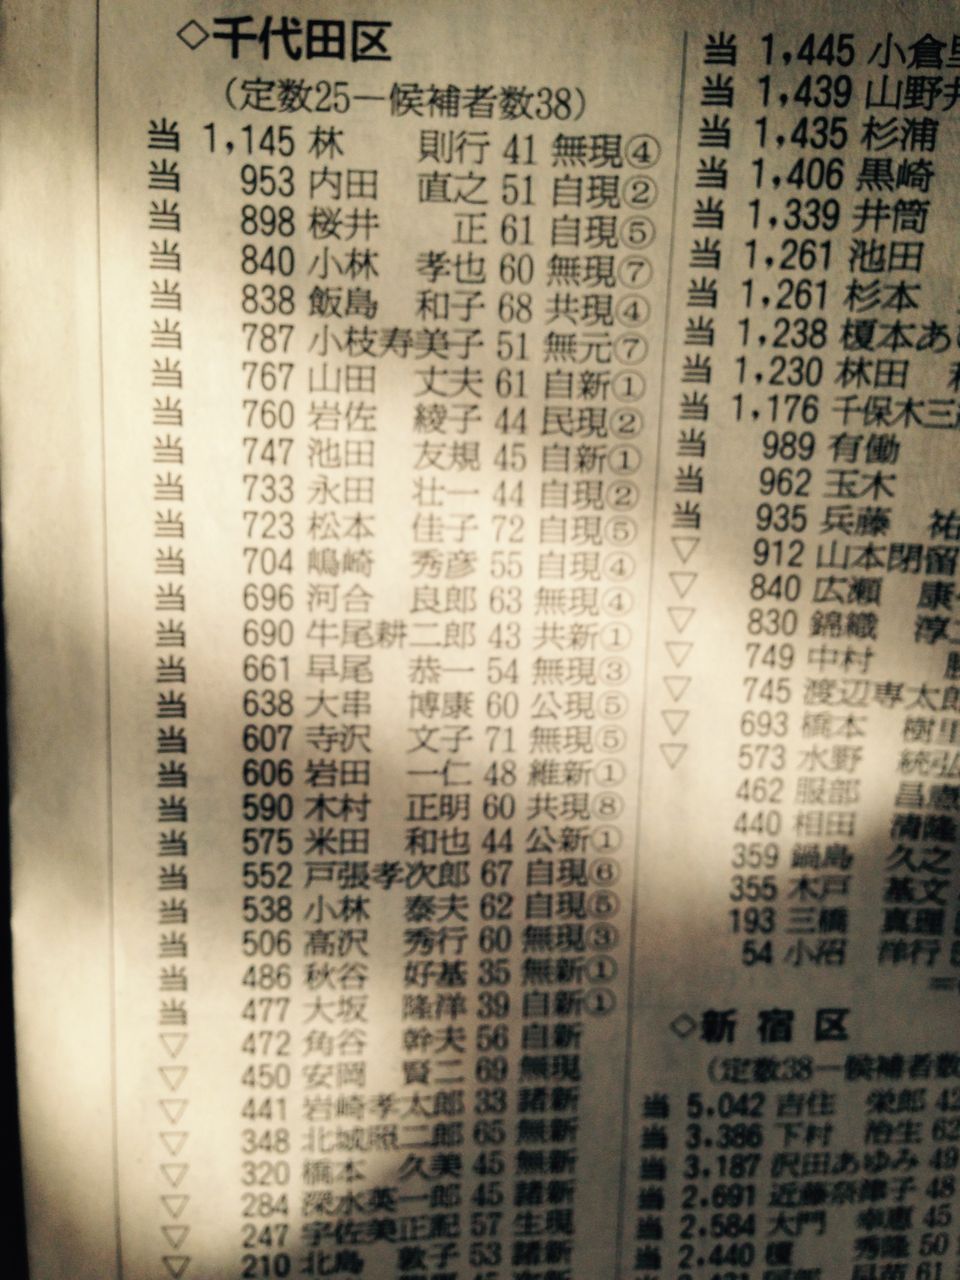 ◇千代田区
(定数25―候補者数38)
当 1,145 林 則行 41 無現④
当 953 内田 直之 51 自現②
当 898 桜井 正 61 自現⑤
当 840 小林 孝也 60 無現⑦
当 838 飯島 和子 68 共現④
当 787 小枝寿美子 51 無元⑦
当 767 山田 丈夫 61 自新①
当 760 岩佐 綾子 44 民現②
当 747 池田 友規 45 自新①
当 733 永田 壮一 44 自現②
当 723 松本 佳子 72 自現⑤
当 704 嶋崎 秀彦 55 自現④
当 696 河合 良郎 63 無現④
当 690 牛尾耕二郎 43 共新①
当 661 早尾 恭一 54 無現③
当 638 大串 博康 60 公現⑤
当 607 寺沢 文子 71 無現⑤
当 606 岩田 一仁 48 維新①
当 590 木村 正明 60 共現⑧
当 575 米田 和也 44 公新①
当 552 戸張孝次郎 67 自現⑥
当 538 小林 泰夫 62 自現⑤
当 506 高沢 秀行 60 無現③
当 486 秋谷 好基 35 無新①
当 477 大坂 隆洋 39 自新①
▽ 472 角谷 幹夫 56 自新
▽ 450 安岡 賢二 69 無現
▽ 441 岩崎孝太郎 33 諸新
▽ 348 北城照二郎 65 無新
▽ 320 橋本 久美 45 無新
▽ 284 深水英一郎 45 諸新
▽ 247 宇佐美正紀 57 生現
▽ 210 北島 敦子 53 諸新
当 1,445 小倉
当 1,439 山野井
当 1,435 杉浦
当 1,406 黒崎
当 1,339 井筒
当 1,261 池田
当 1,261 杉本
当 1,238 榎本あ
当 1,230 林田
当 1,176 千保木三
当 989 有働
当 962 玉木
当 935 兵藤 祐
▽ 912 山本閉留
▽ 840 広瀬 康
▽ 830 錦織 淳
▽ 749 中村
▽ 745 渡辺専太郎
▽ 693 橋本 樹里
▽ 573 水野 統弘
462 服部 昌憲
440 相田 清隆
359 鍋島 久之
355 木戸 基文
193 三橋 真理
54 小沼 洋行
◇新宿区
(定数38―候補者数
当 5,042 吉住 栄郎 42
当 3,386 下村 治生 62
当 3,187 沢田あゆみ 49
当 2,691 近藤奈津子 48
当 2,584 大門 幸恵 45
当 2,440 榎 秀隆 50